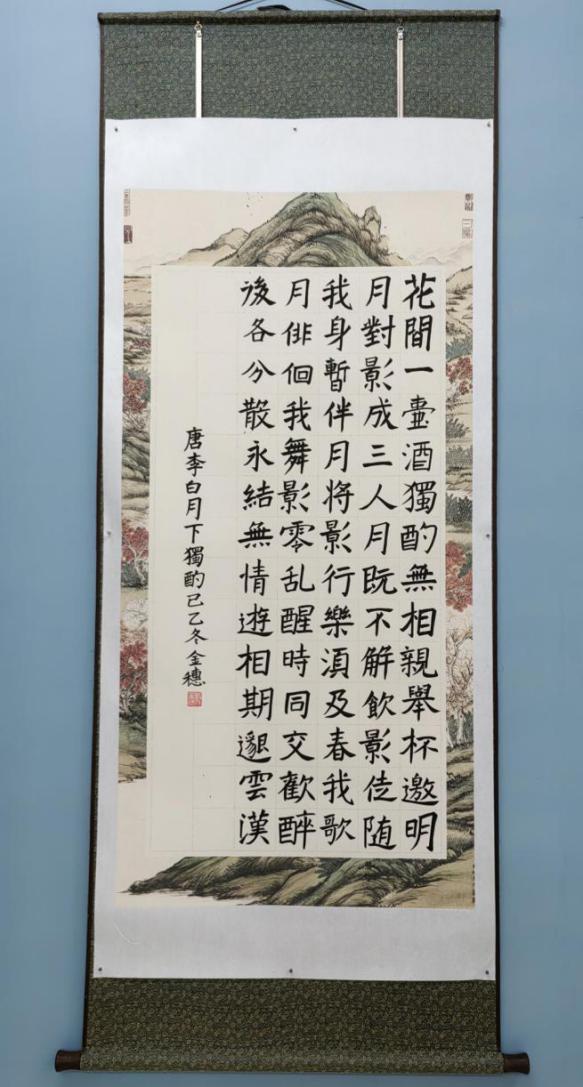 花間一壷酒獨酌無相親舉杯邀明
月對影成三人月既不解飲影徒随
我身暫伴月将影行樂湏及春我歌
月徘徊我舞影零乱醒時同交歡醉
後各分散永結無情遊相期邈雲漢
唐李白月下獨酌己乙冬金穗